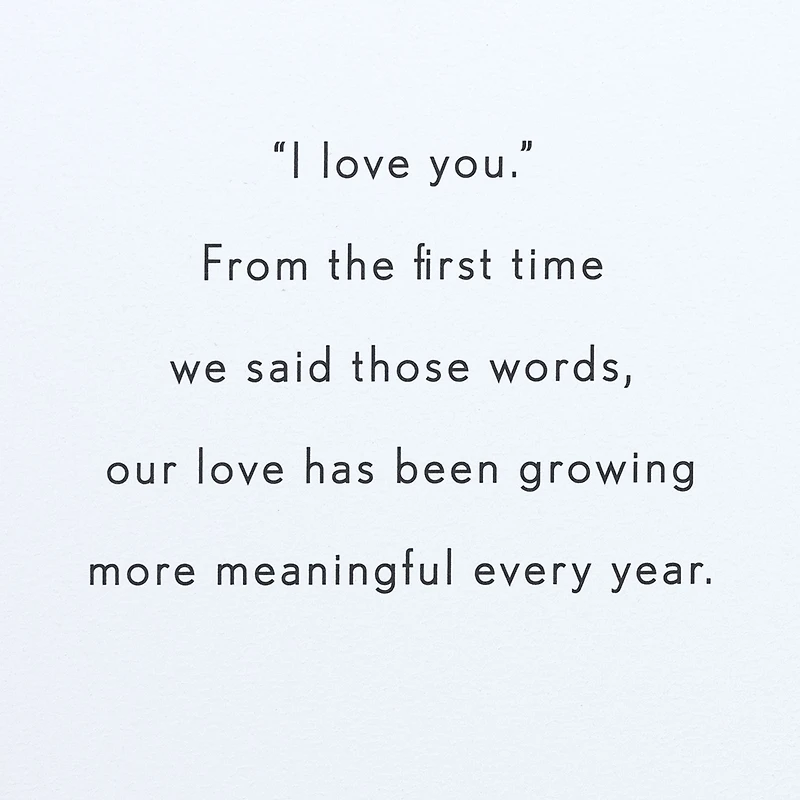 “I love you.”
From the first time
we said those words,
our love has been growing
more meaningful every year.